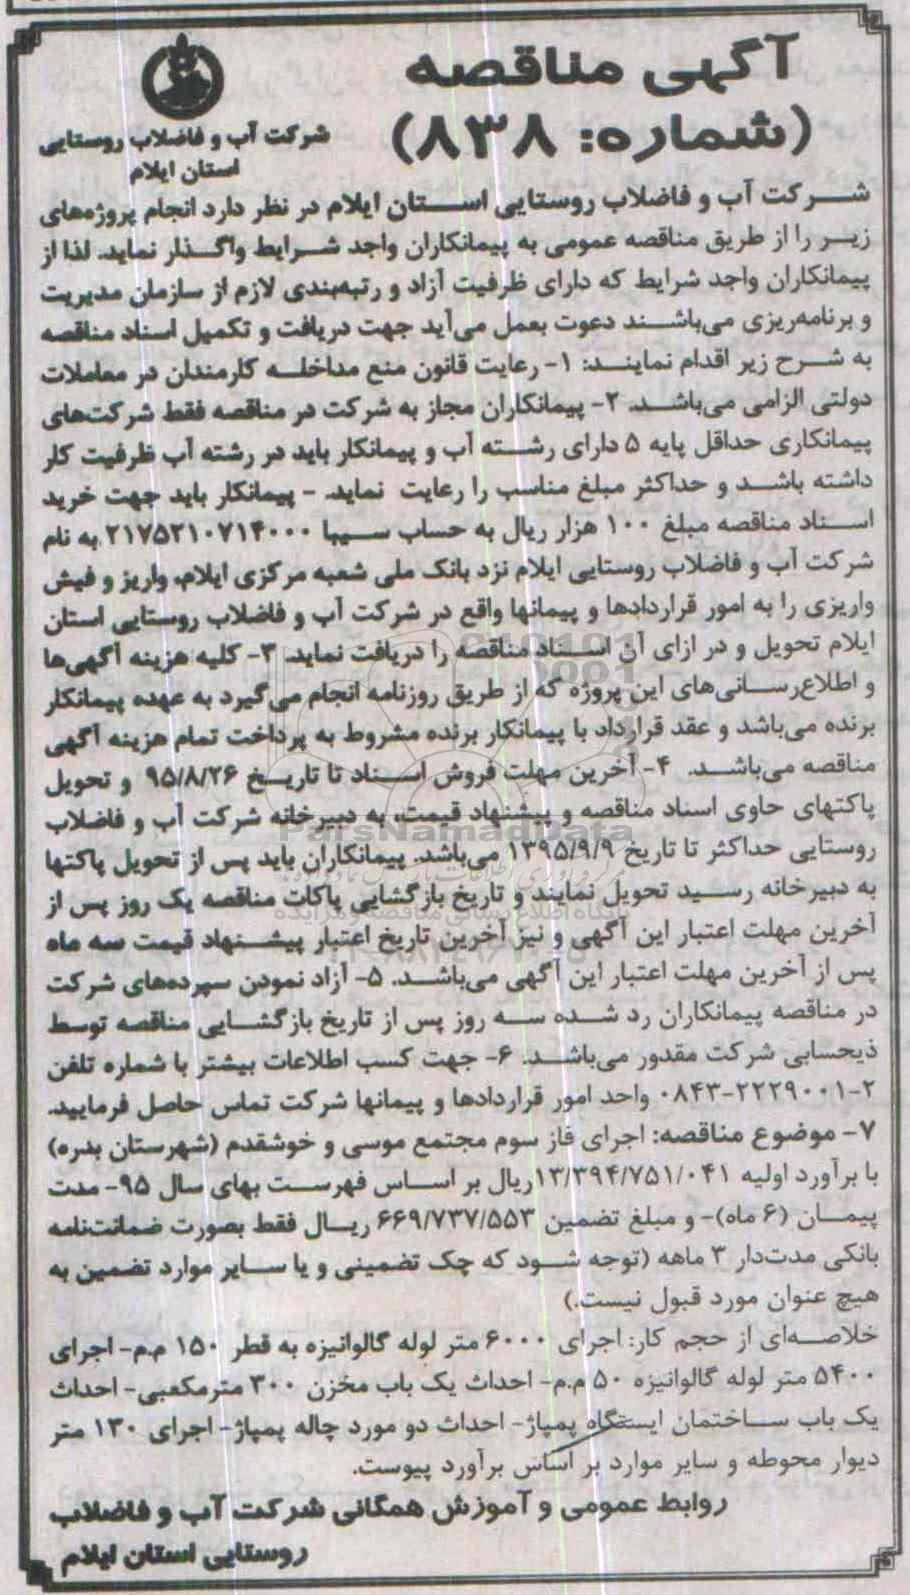 آگهی مناقصه
(شماره: ۸۳۸)
شرکت آب و فاضلاب روستایی
استان ایلام
شرکت آب و فاضلاب روستایی استان ایلام در نظر دارد انجام پروژه‌های
زیر را از طریق مناقصه عمومی به پیمانکاران واجد شرایط واگذار نماید. لذا از
پیمانکاران واجد شرایط که دارای ظرفیت آزاد و رتبه‌بندی لازم از سازمان مدیریت
و برنامه‌ریزی می‌باشند دعوت بعمل می‌آید جهت دریافت و تکمیل اسناد مناقصه
به شرح زیر اقدام نمایند: ۱- رعایت قانون منع مداخله کارمندان در معاملات
دولتی الزامی می‌باشد. ۲- پیمانکاران مجاز به شرکت در مناقصه فقط شرکت‌های
پیمانکاری حداقل پایه ۵ دارای رشته آب و پیمانکار باید در رشته آب ظرفیت کار
داشته باشد و حداکثر مبلغ مناسب را رعایت نماید. - پیمانکار باید جهت خرید
اسناد مناقصه مبلغ ۱۰۰ هزار ریال به حساب سیبا ۲۱۷۵۲۱۰۷۱۴۰۰۰ به نام
شرکت آب و فاضلاب روستایی ایلام نزد بانک ملی شعبه مرکزی ایلام، واریز و فیش
واریزی را به امور قراردادها و پیمانها واقع در شرکت آب و فاضلاب روستایی استان
ایلام تحویل و در ازای آن اسناد مناقصه را دریافت نماید. ۳- کلیه هزینه آگهی‌ها
و اطلاع‌رسانی‌های این پروژه که از طریق روزنامه انجام می‌گیرد به عهده پیمانکار
برنده می‌باشد و عقد قرارداد با پیمانکار برنده مشروط به پرداخت تمام هزینه آگهی
مناقصه می‌باشد. ۴- آخرین مهلت فروش اسناد تا تاریخ ۹۵/۸/۲۶ و تحویل
پاکتهای حاوی اسناد مناقصه و پیشنهاد قیمت، به دبیرخانه شرکت آب و فاضلاب
روستایی حداکثر تا تاریخ ۱۳۹۵/۹/۹ می‌باشد. پیمانکاران باید پس از تحویل پاکتها
به دبیرخانه رسید تحویل نمایند و تاریخ بازگشایی پاکات مناقصه یک روز پس از
آخرین مهلت اعتبار این آگهی و نیز آخرین تاریخ اعتبار پیشنهاد قیمت سه ماه
پس از آخرین مهلت اعتبار این آگهی می‌باشد. ۵- آزاد نمودن سپرده‌های شرکت
در مناقصه پیمانکاران رد شده سه روز پس از تاریخ بازگشایی مناقصه توسط
ذیحسابی شرکت مقدور می‌باشد. ۶- جهت کسب اطلاعات بیشتر با شماره تلفن
۰۸۴۳-۲۲۲۹۰۰۱-۲ واحد امور قراردادها و پیمانها شرکت تماس حاصل فرمایید.
۷- موضوع مناقصه: اجرای فاز سوم مجتمع موسی و خوشقدم (شهرستان بدره)
با برآورد اولیه ۱۳/۳۹۴/۷۵۱/۰۴۱ریال بر اساس فهرست بهای سال ۹۵- مدت
پیمان (۶ ماه)- و مبلغ تضمین ۶۶۹/۷۳۷/۵۵۳ ریال فقط بصورت ضمانت‌نامه
بانکی مدت‌دار ۳ ماهه (توجه شود که چک تضمینی و یا سایر موارد تضمین به
هیچ عنوان مورد قبول نیست.)
خلاصه‌ای از حجم کار: اجرای ۶۰۰۰ متر لوله گالوانیزه به قطر ۱۵۰ م.م- اجرای
۵۴۰۰ متر لوله گالوانیزه ۵۰ م.م- احداث یک باب مخزن ۳۰۰ مترمکعبی- احداث
یک باب ساختمان ایستگاه پمپاژ- احداث دو مورد چاله پمپاژ- اجرای ۱۳۰ متر
دیوار محوطه و سایر موارد بر اساس برآورد پیوست.
روابط عمومی و آموزش همگانی شرکت آب و فاضلاب
روستایی استان ایلام
ParsNamadData
پایگاه اطلاع رسانی مناقصه و مزایده